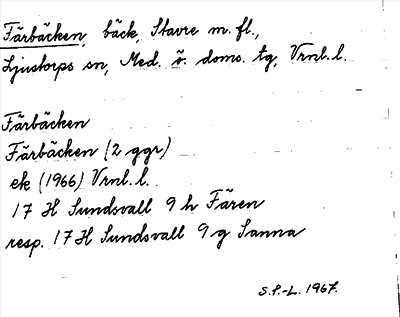 Färbäcken, bäck, Stavre m. fl.,
Ljustorps sn, Med. ö. doms. tg, Vrnl. l.
Färbäcken
Färbäcken (2 ggr)
ek (1966) Vrnl. l.
17 H Sundsvall 9 h Fären
resp. 17 H Sundsvall 9 g Sanna
S.F.-L. 1967.